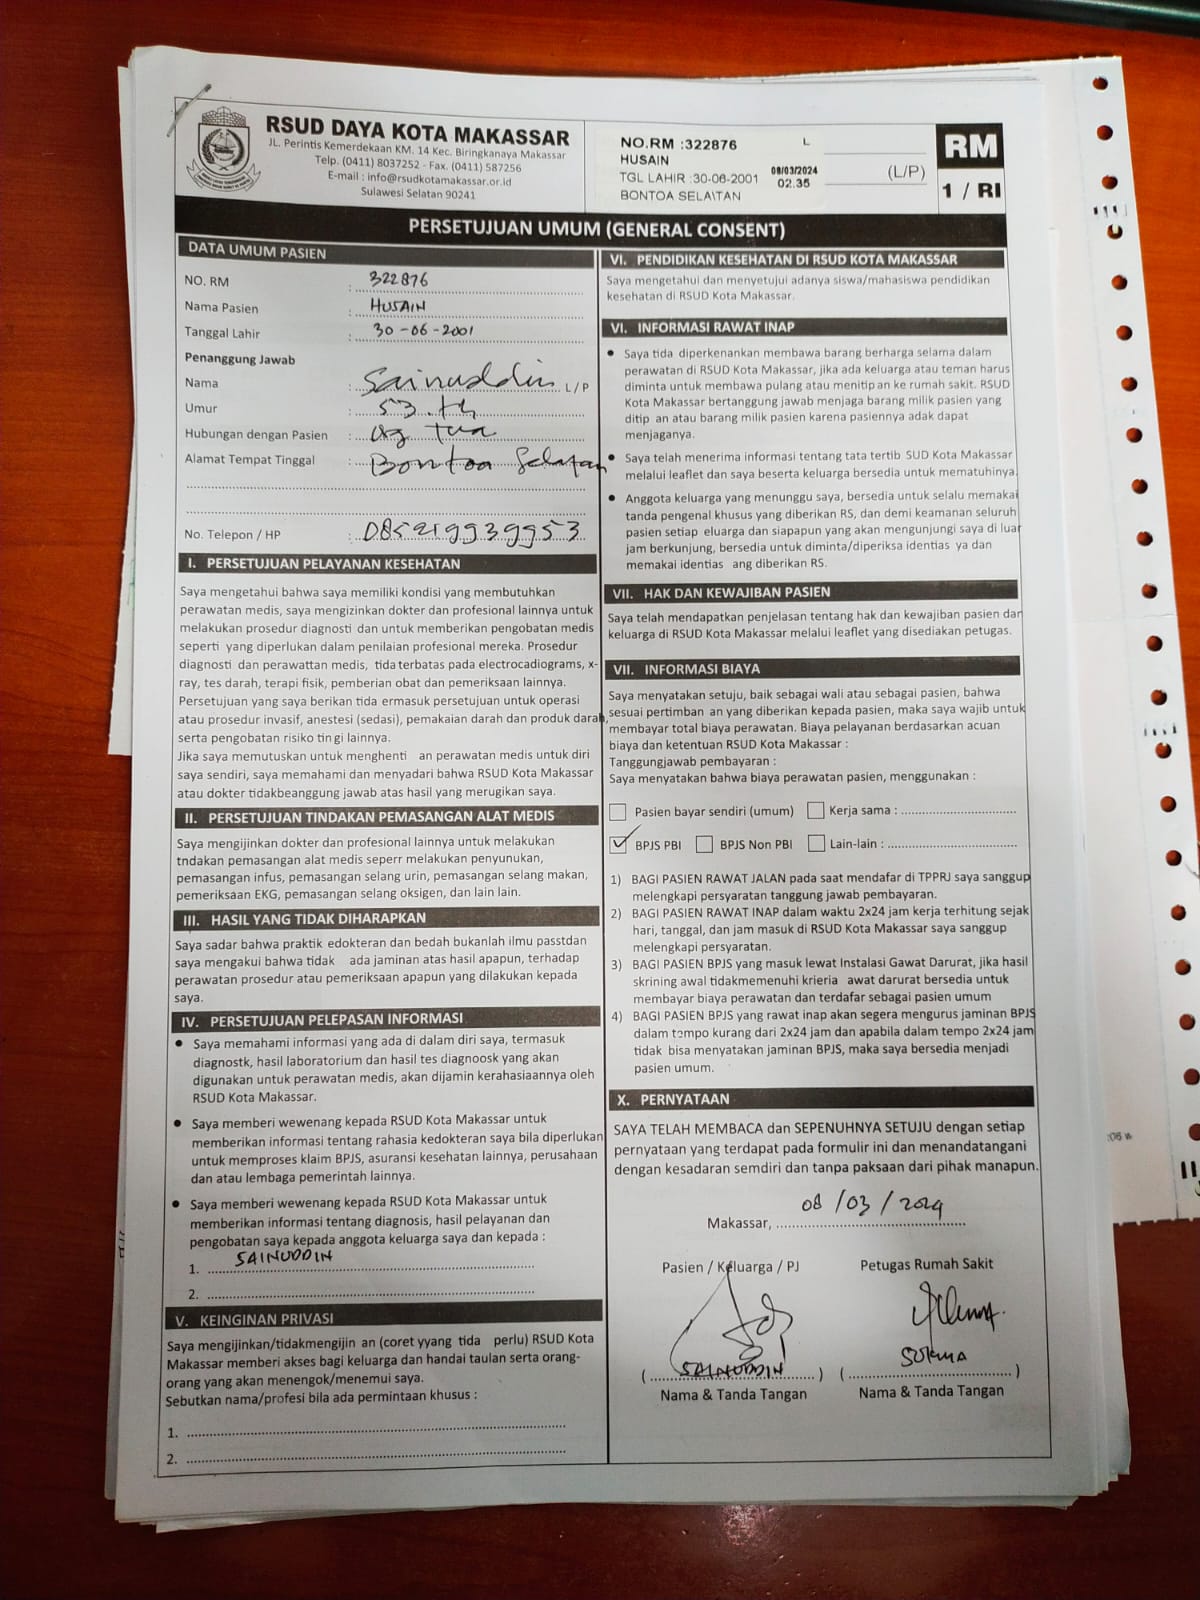 RSUD DAYA KOTA MAKASSAR
JL. Perintis Kemerdekaan KM. 14 Kec. Biringkanaya Makassar
Telp. (0411) 8037252 - Fax. (0411) 587256
E-mail : info@rsudkotamakassar.or.id
Sulawesi Selatan 90241
NO.RM :322876 L
HUSAIN
TGL LAHIR :30-06-2001
BONTOA SELATAN
08/03/2024
02.35
(L/P)
RM
1 / RI
PERSETUJUAN UMUM (GENERAL CONSENT)
DATA UMUM PASIEN
NO. RM : 322876
Nama Pasien : HUSAIN
Tanggal Lahir : 30-06-2001
Penanggung Jawab
Nama : Sainuddin L/P
Umur : 53 th
Hubungan dengan Pasien : Org Tua
Alamat Tempat Tinggal : Bontoa Selatan
No. Telepon / HP :
I. PERSETUJUAN PELAYANAN KESEHATAN
Saya mengetahui bahwa saya memiliki kondisi yang membutuhkan
perawatan medis, saya mengizinkan dokter dan profesional lainnya untuk
melakukan prosedur diagnosti dan untuk memberikan pengobatan medis
seperti yang diperlukan dalam penilaian profesional mereka. Prosedur
diagnosti dan perawattan medis, tida terbatas pada electrocadiograms, x-
ray, tes darah, terapi fisik, pemberian obat dan pemeriksaan lainnya.
Persetujuan yang saya berikan tida ermasuk persetujuan untuk operasi
atau prosedur invasif, anestesi (sedasi), pemakaian darah dan produk darah,
serta pengobatan risiko tin gi lainnya.
Jika saya memutuskan untuk menghenti an perawatan medis untuk diri
saya sendiri, saya memahami dan menyadari bahwa RSUD Kota Makassar
atau dokter tidakbeanggung jawab atas hasil yang merugikan saya.
II. PERSETUJUAN TINDAKAN PEMASANGAN ALAT MEDIS
Saya mengijinkan dokter dan profesional lainnya untuk melakukan
tndakan pemasangan alat medis seperr melakukan penyunukan,
pemasangan infus, pemasangan selang urin, pemasangan selang makan,
pemeriksaan EKG, pemasangan selang oksigen, dan lain lain.
III. HASIL YANG TIDAK DIHARAPKAN
Saya sadar bahwa praktik edokteran dan bedah bukanlah ilmu passtdan
saya mengakui bahwa tidak ada jaminan atas hasil apapun, terhadap
perawatan prosedur atau pemeriksaan apapun yang dilakukan kepada
saya.
IV. PERSETUJUAN PELEPASAN INFORMASI
• Saya memahami informasi yang ada di dalam diri saya, termasuk
diagnostk, hasil laboratorium dan hasil tes diagnoosk yang akan
digunakan untuk perawatan medis, akan dijamin kerahasiaannya oleh
RSUD Kota Makassar.
• Saya memberi wewenang kepada RSUD Kota Makassar untuk
memberikan informasi tentang rahasia kedokteran saya bila diperlukan
untuk memproses klaim BPJS, asuransi kesehatan lainnya, perusahaan
dan atau lembaga pemerintah lainnya.
• Saya memberi wewenang kepada RSUD Kota Makassar untuk
memberikan informasi tentang diagnosis, hasil pelayanan dan
pengobatan saya kepada anggota keluarga saya dan kepada :
1. SAINUDDIN
2.
V. KEINGINAN PRIVASI
Saya mengijinkan/tidakmengijin an (coret yyang tida perlu) RSUD Kota
Makassar memberi akses bagi keluarga dan handai taulan serta orang-
orang yang akan menengok/menemui saya.
Sebutkan nama/profesi bila ada permintaan khusus :
1.
2.
VI. PENDIDIKAN KESEHATAN DI RSUD KOTA MAKASSAR
Saya mengetahui dan menyetujui adanya siswa/mahasiswa pendidikan
kesehatan di RSUD Kota Makassar.
VI. INFORMASI RAWAT INAP
• Saya tida diperkenankan membawa barang berharga selama dalam
perawatan di RSUD Kota Makassar, jika ada keluarga atau teman harus
diminta untuk membawa pulang atau menitip an ke rumah sakit. RSUD
Kota Makassar bertanggung jawab menjaga barang milik pasien yang
ditip an atau barang milik pasien karena pasiennya adak dapat
menjaganya.
• Saya telah menerima informasi tentang tata tertib SUD Kota Makassar
melalui leaflet dan saya beserta keluarga bersedia untuk mematuhinya.
• Anggota keluarga yang menunggu saya, bersedia untuk selalu memakai
tanda pengenal khusus yang diberikan RS, dan demi keamanan seluruh
pasien setiap eluarga dan siapapun yang akan mengunjungi saya di luar
jam berkunjung, bersedia untuk diminta/diperiksa identias ya dan
memakai identias ang diberikan RS.
VII. HAK DAN KEWAJIBAN PASIEN
Saya telah mendapatkan penjelasan tentang hak dan kewajiban pasien dan
keluarga di RSUD Kota Makassar melalui leaflet yang disediakan petugas.
VII. INFORMASI BIAYA
Saya menyatakan setuju, baik sebagai wali atau sebagai pasien, bahwa
sesuai pertimban an yang diberikan kepada pasien, maka saya wajib untuk
membayar total biaya perawatan. Biaya pelayanan berdasarkan acuan
biaya dan ketentuan RSUD Kota Makassar :
Tanggungjawab pembayaran :
Saya menyatakan bahwa biaya perawatan pasien, menggunakan :
Pasien bayar sendiri (umum) Kerja sama :
BPJS PBI BPJS Non PBI Lain-lain :
1) BAGI PASIEN RAWAT JALAN pada saat mendafar di TPPRJ saya sanggup
melengkapi persyaratan tanggung jawab pembayaran.
2) BAGI PASIEN RAWAT INAP dalam waktu 2x24 jam kerja terhitung sejak
hari, tanggal, dan jam masuk di RSUD Kota Makassar saya sanggup
melengkapi persyaratan.
3) BAGI PASIEN BPJS yang masuk lewat Instalasi Gawat Darurat, jika hasil
skrining awal tidakmemenuhi krieria awat darurat bersedia untuk
membayar biaya perawatan dan terdafar sebagai pasien umum
4) BAGI PASIEN BPJS yang rawat inap akan segera mengurus jaminan BPJS
dalam tempo kurang dari 2x24 jam dan apabila dalam tempo 2x24 jam
tidak bisa menyatakan jaminan BPJS, maka saya bersedia menjadi
pasien umum.
X. PERNYATAAN
SAYA TELAH MEMBACA dan SEPENUHNYA SETUJU dengan setiap
pernyataan yang terdapat pada formulir ini dan menandatangani
dengan kesadaran semdiri dan tanpa paksaan dari pihak manapun.
Makassar, 08/03/2024
Pasien / Keluarga / PJ Petugas Rumah Sakit
(SAINUDDIN) (SUKMA)
Nama & Tanda Tangan Nama & Tanda Tangan